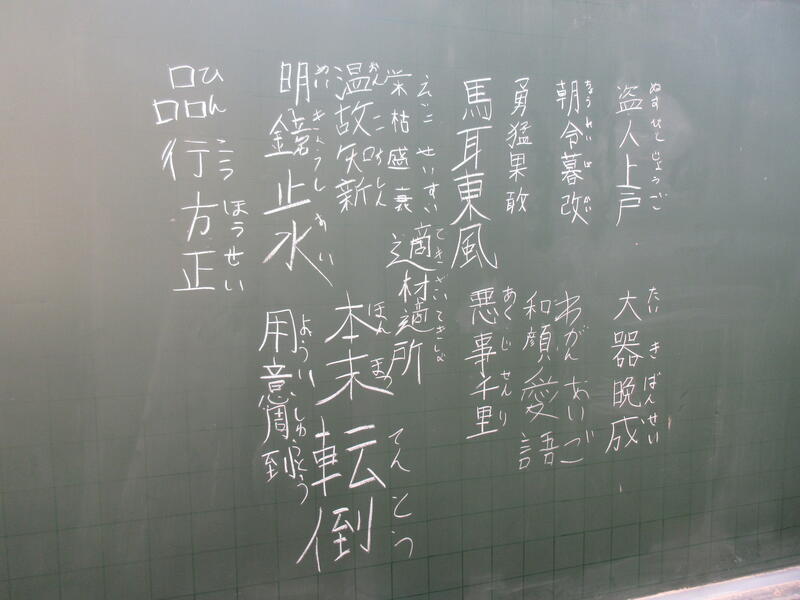 盗人上戸
ぬすびとじょうご
朝令暮改
ちょうれいぼかい
勇猛果敢
馬耳東風
栄枯盛衰
えいこせいすい
温故知新
おんこちしん
明鏡止水
めいきょうしすい
品行方正
ひんこうほうせい
大器晩成
たいきばんせい
和顔愛語
わがんあいご
悪事千里
あくじせんり
適材適所
てきざいてきしょ
本末転倒
ほんまつてんとう
用意周到
よういしゅうとう